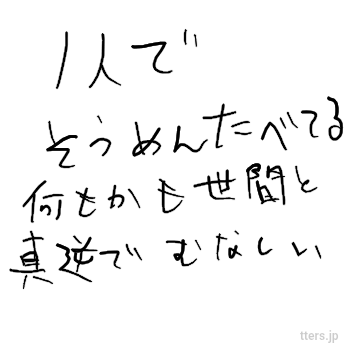 1人で
そうめんたべてる
何もかも世間と
真逆で むなしい
tters.jp